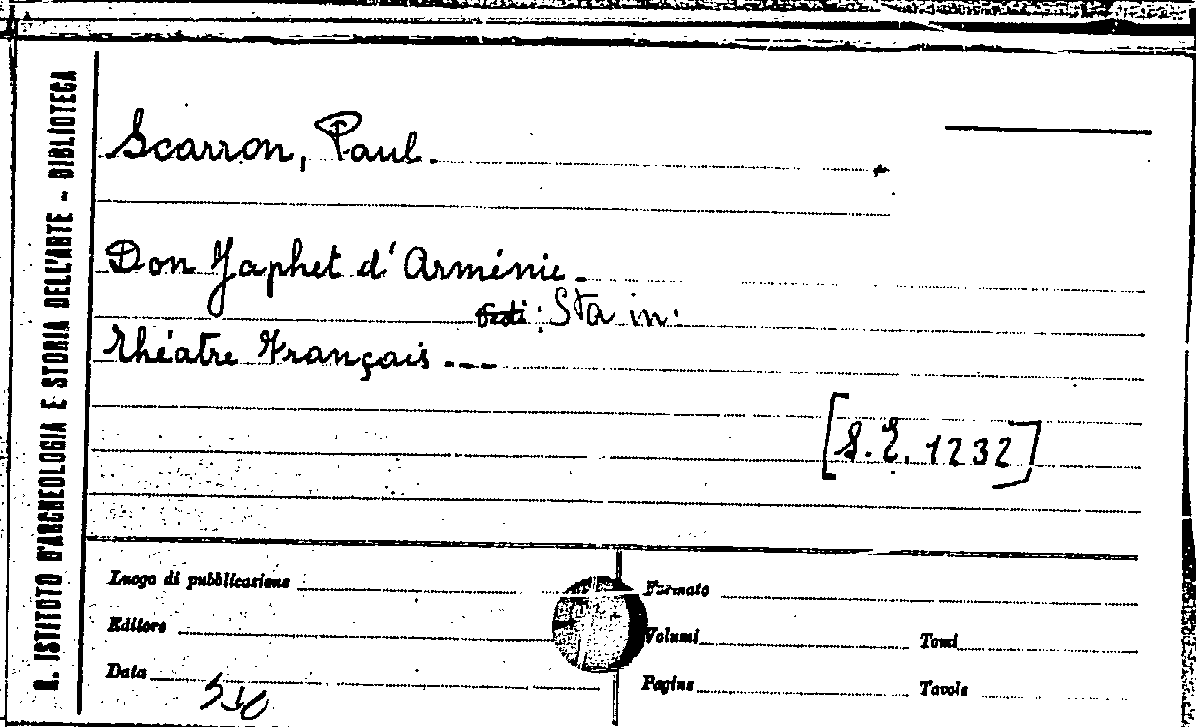 R. ISTITUTO D'ARCHEOLOGIA E STORIA DELL'ARTE - BIBLIOTECA
Scarron, Paul.
Don Japhet d'Arménie.
Sta in:
Théatre Français ---
[S.E. 1232]
Luogo di pubblicazione
Formato
Editore
Volumi Tomi
Data
Pagine Tavole